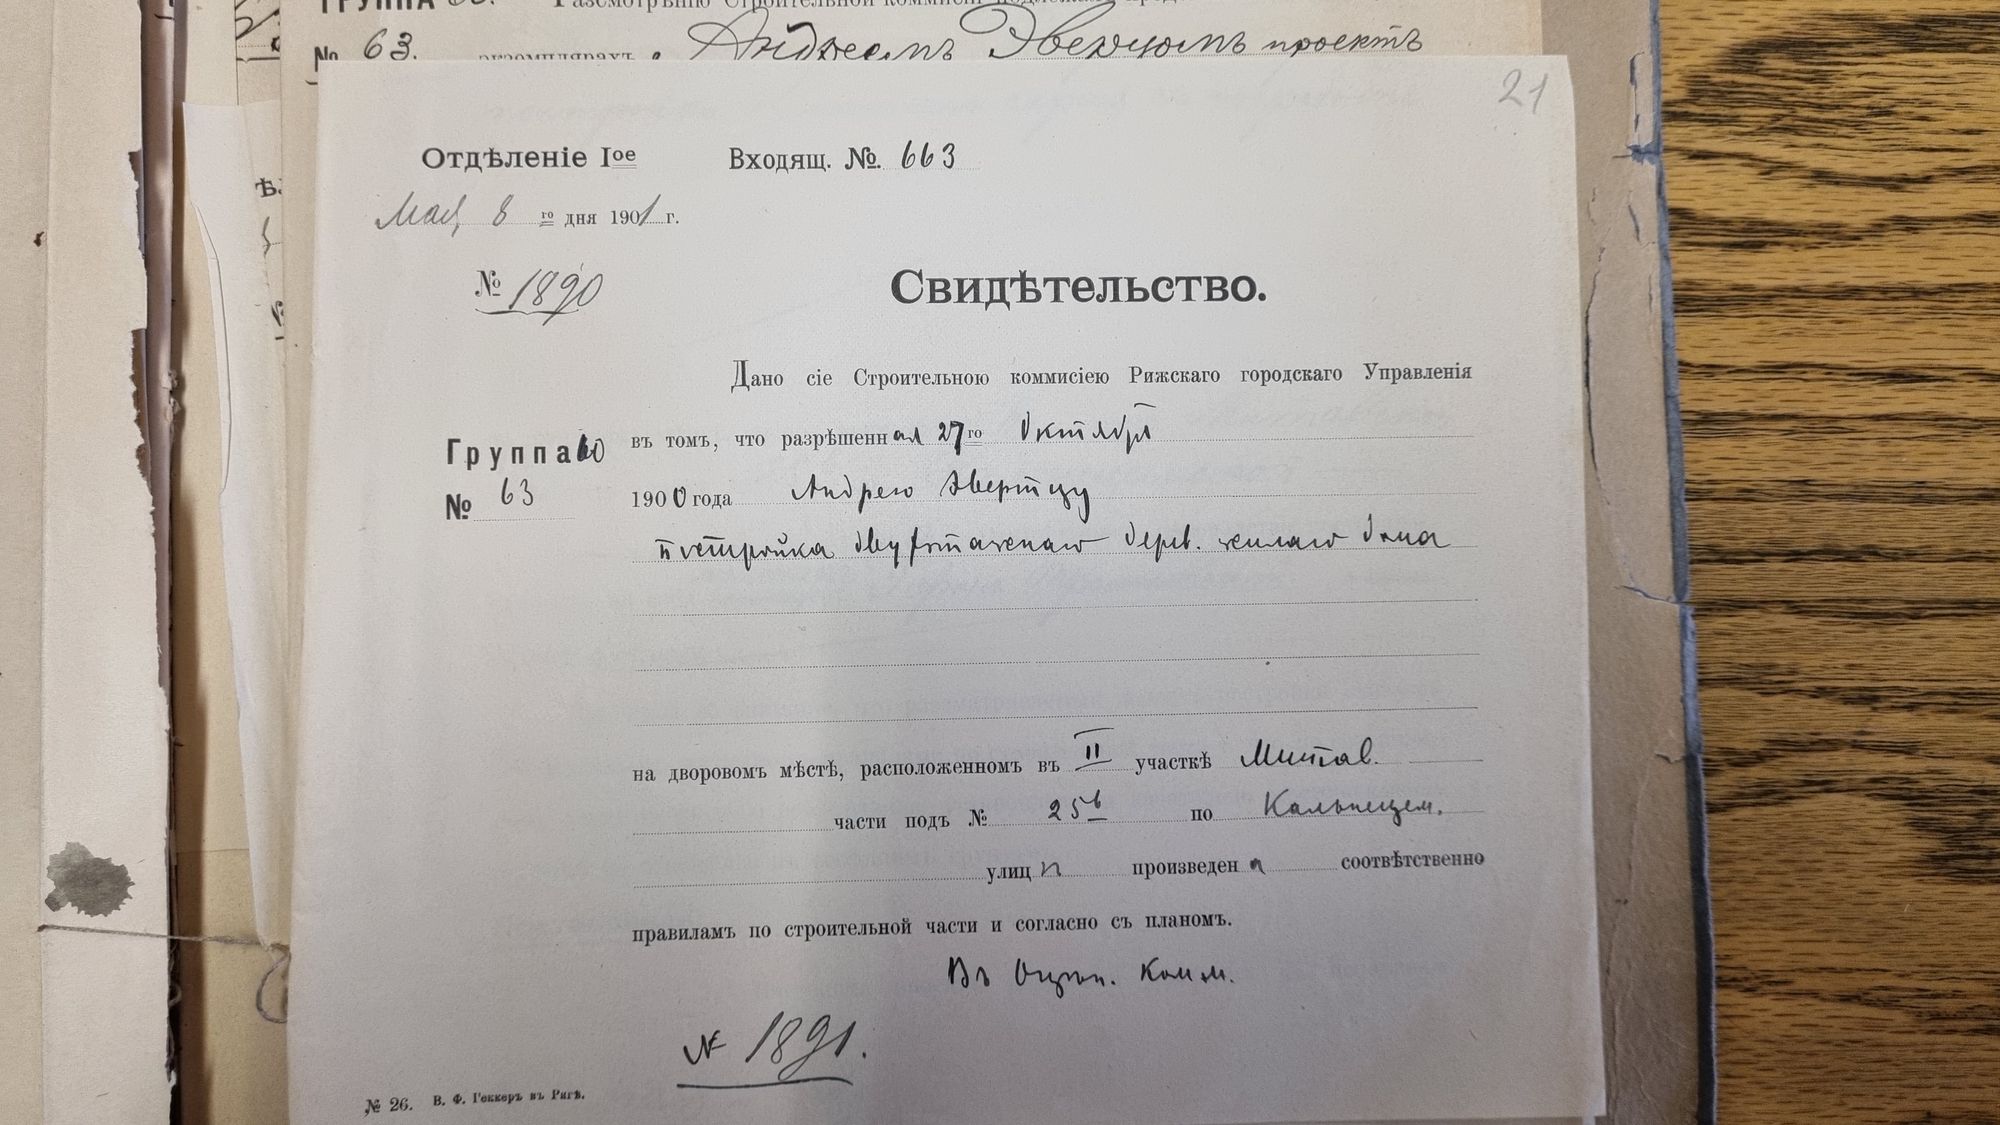 № 63. экземплярахъ проектъ
21
Отдѣленіе Iое Входящ. №. 663
Мая 8 го дня 1901 г.
№ 1890
Свидѣтельство.
Дано сіе Строительною коммисіею Рижскаго городскаго Управленія
Группа 60 въ томъ, что разрѣшенная 27го Октября
№ 63 1900 года Андрею Эвертцу
постройка двухэтажнаго дерев. жилаго дома
на дворовомъ мѣстѣ, расположенномъ въ II участкѣ Митав.
части подъ № 25б по Кальнецем.
улицѣ произведена соотвѣтственно
правиламъ по строительной части и согласно съ планомъ.
Въ Оцѣн. Комм.
№ 1891.
№ 26. В. Ф. Геккеръ въ Ригѣ.